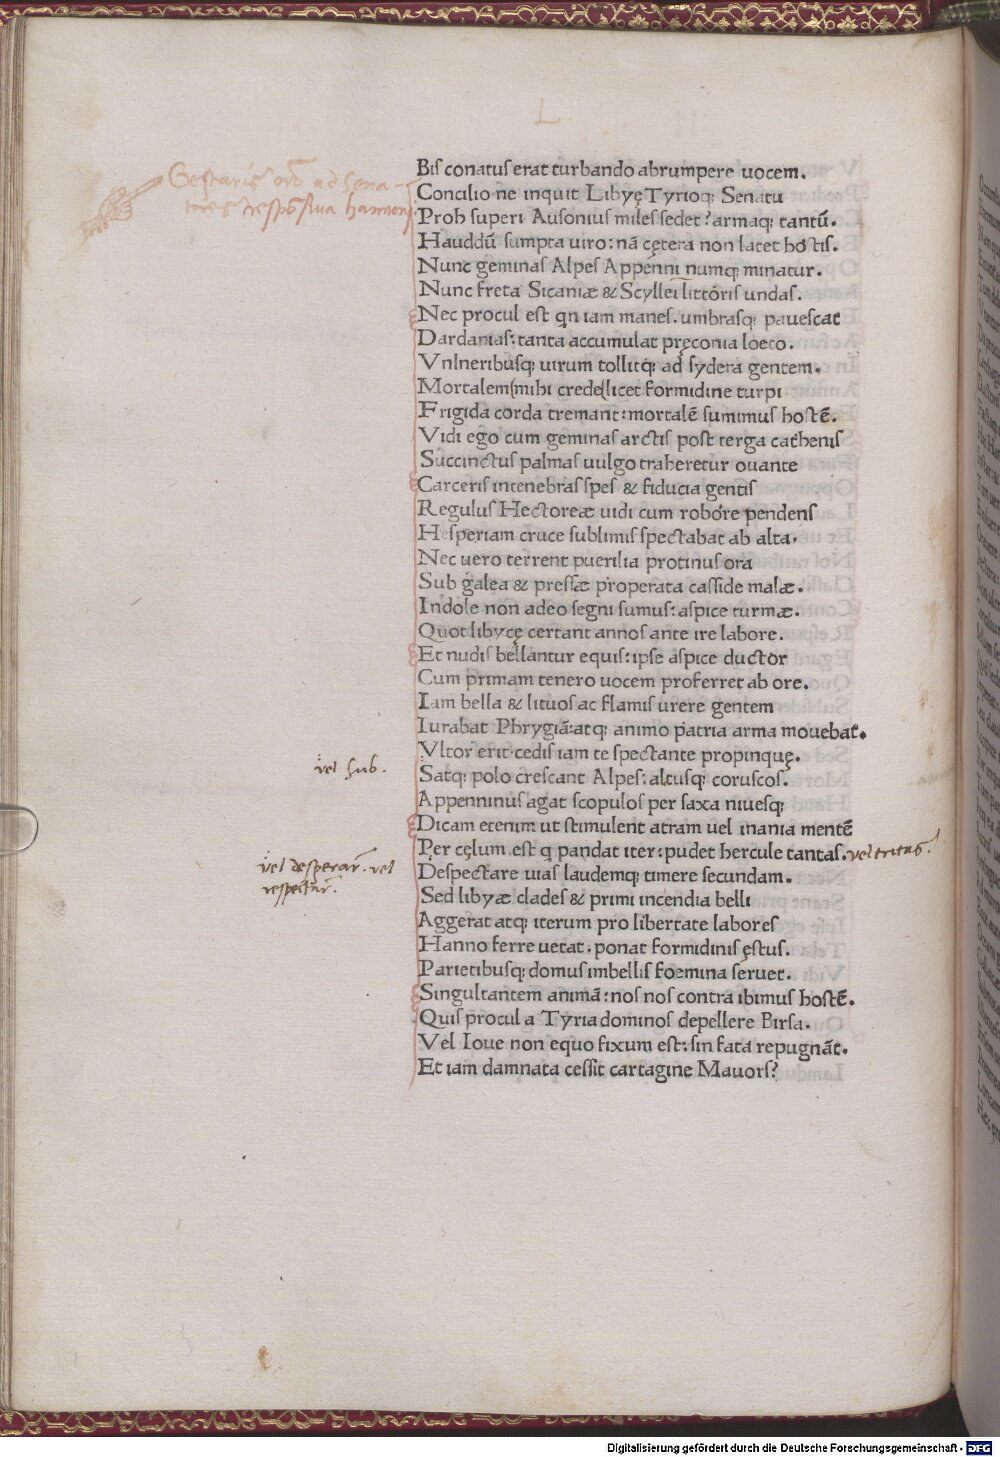 L.
Gestaris orō ad Sena-
tores responsiua hannoni
Bis conatus erat turbando abrumpere uocem.
Concilio ne inquit Libyę Tyrioq; Senatu
Proh superi Ausonius miles sedet? armaq; tantū.
Hauddū sumpta uiro: nā cętera non latet hostis.
Nunc geminas Alpes Appenninumq; minatur.
Nunc freta Sicaniæ & Scyllei littoris undas.
Nec procul est qn iam manes. umbrasq; pauescat
Dardanias: tanta accumulat pręconia loeto.
Vnlneribusq; uirum tollitq; ad sydera gentem.
Mortalem(mihi crede(licet formidine turpi
Frigida corda tremant: mortalē sumimus hostē.
Vidi ego cum geminas arctis post terga cathenis
Succinctus palmas uulgo traheretur ouante
Carceris intenebras spes & fiducia gentis
Regulus Hectoreæ uidi cum robore pendens
Hesperiam cruce sublimis spectabat ab alta.
Nec uero terrent puerilia protinus ora
Sub galea & pressæ properata casside malæ.
Indole non adeo segni sumus: aspice turmæ.
Quot libycę certant annos ante ire labore.
Et nudis bellantur equis: ipse aspice ductor
Cum primam tenero uocem proferret ab ore.
Iam bella & lituos ac flamis urere gentem
Iurabat Phrygiā: atq; animo patria arma mouebat.
Vltor erit. cedis iam te spectante propinquę.
vel sub.
Satq; polo crescant Alpes: altusq; coruscos.
Appenninus agat scopulos per saxa niuesq;
Dicam etenim ut stimulent atram uel inania mentē
Per cęlum est q pandat iter: pudet hercule tantas. vel tritas.
vel desperar. vel
respectar.
Despectare uias laudemq; timere secundam.
Sed libyæ clades & primi incendia belli
Aggerat atq; iterum pro libertate labores
Hanno ferre uetat. ponat formidinis ęstus.
Parietibusq; domus imbellis foemina seruet.
Singultantem animā: nos nos contra ibimus hostē.
Quis procul a Tyria dominos depellere Birsa.
Vel Ioue non equo fixum est: sin fata repugnāt.
Et iam damnata cessit cartagine Mauors?
Digitalisierung gefördert durch die Deutsche Forschungsgemeinschaft - DFG